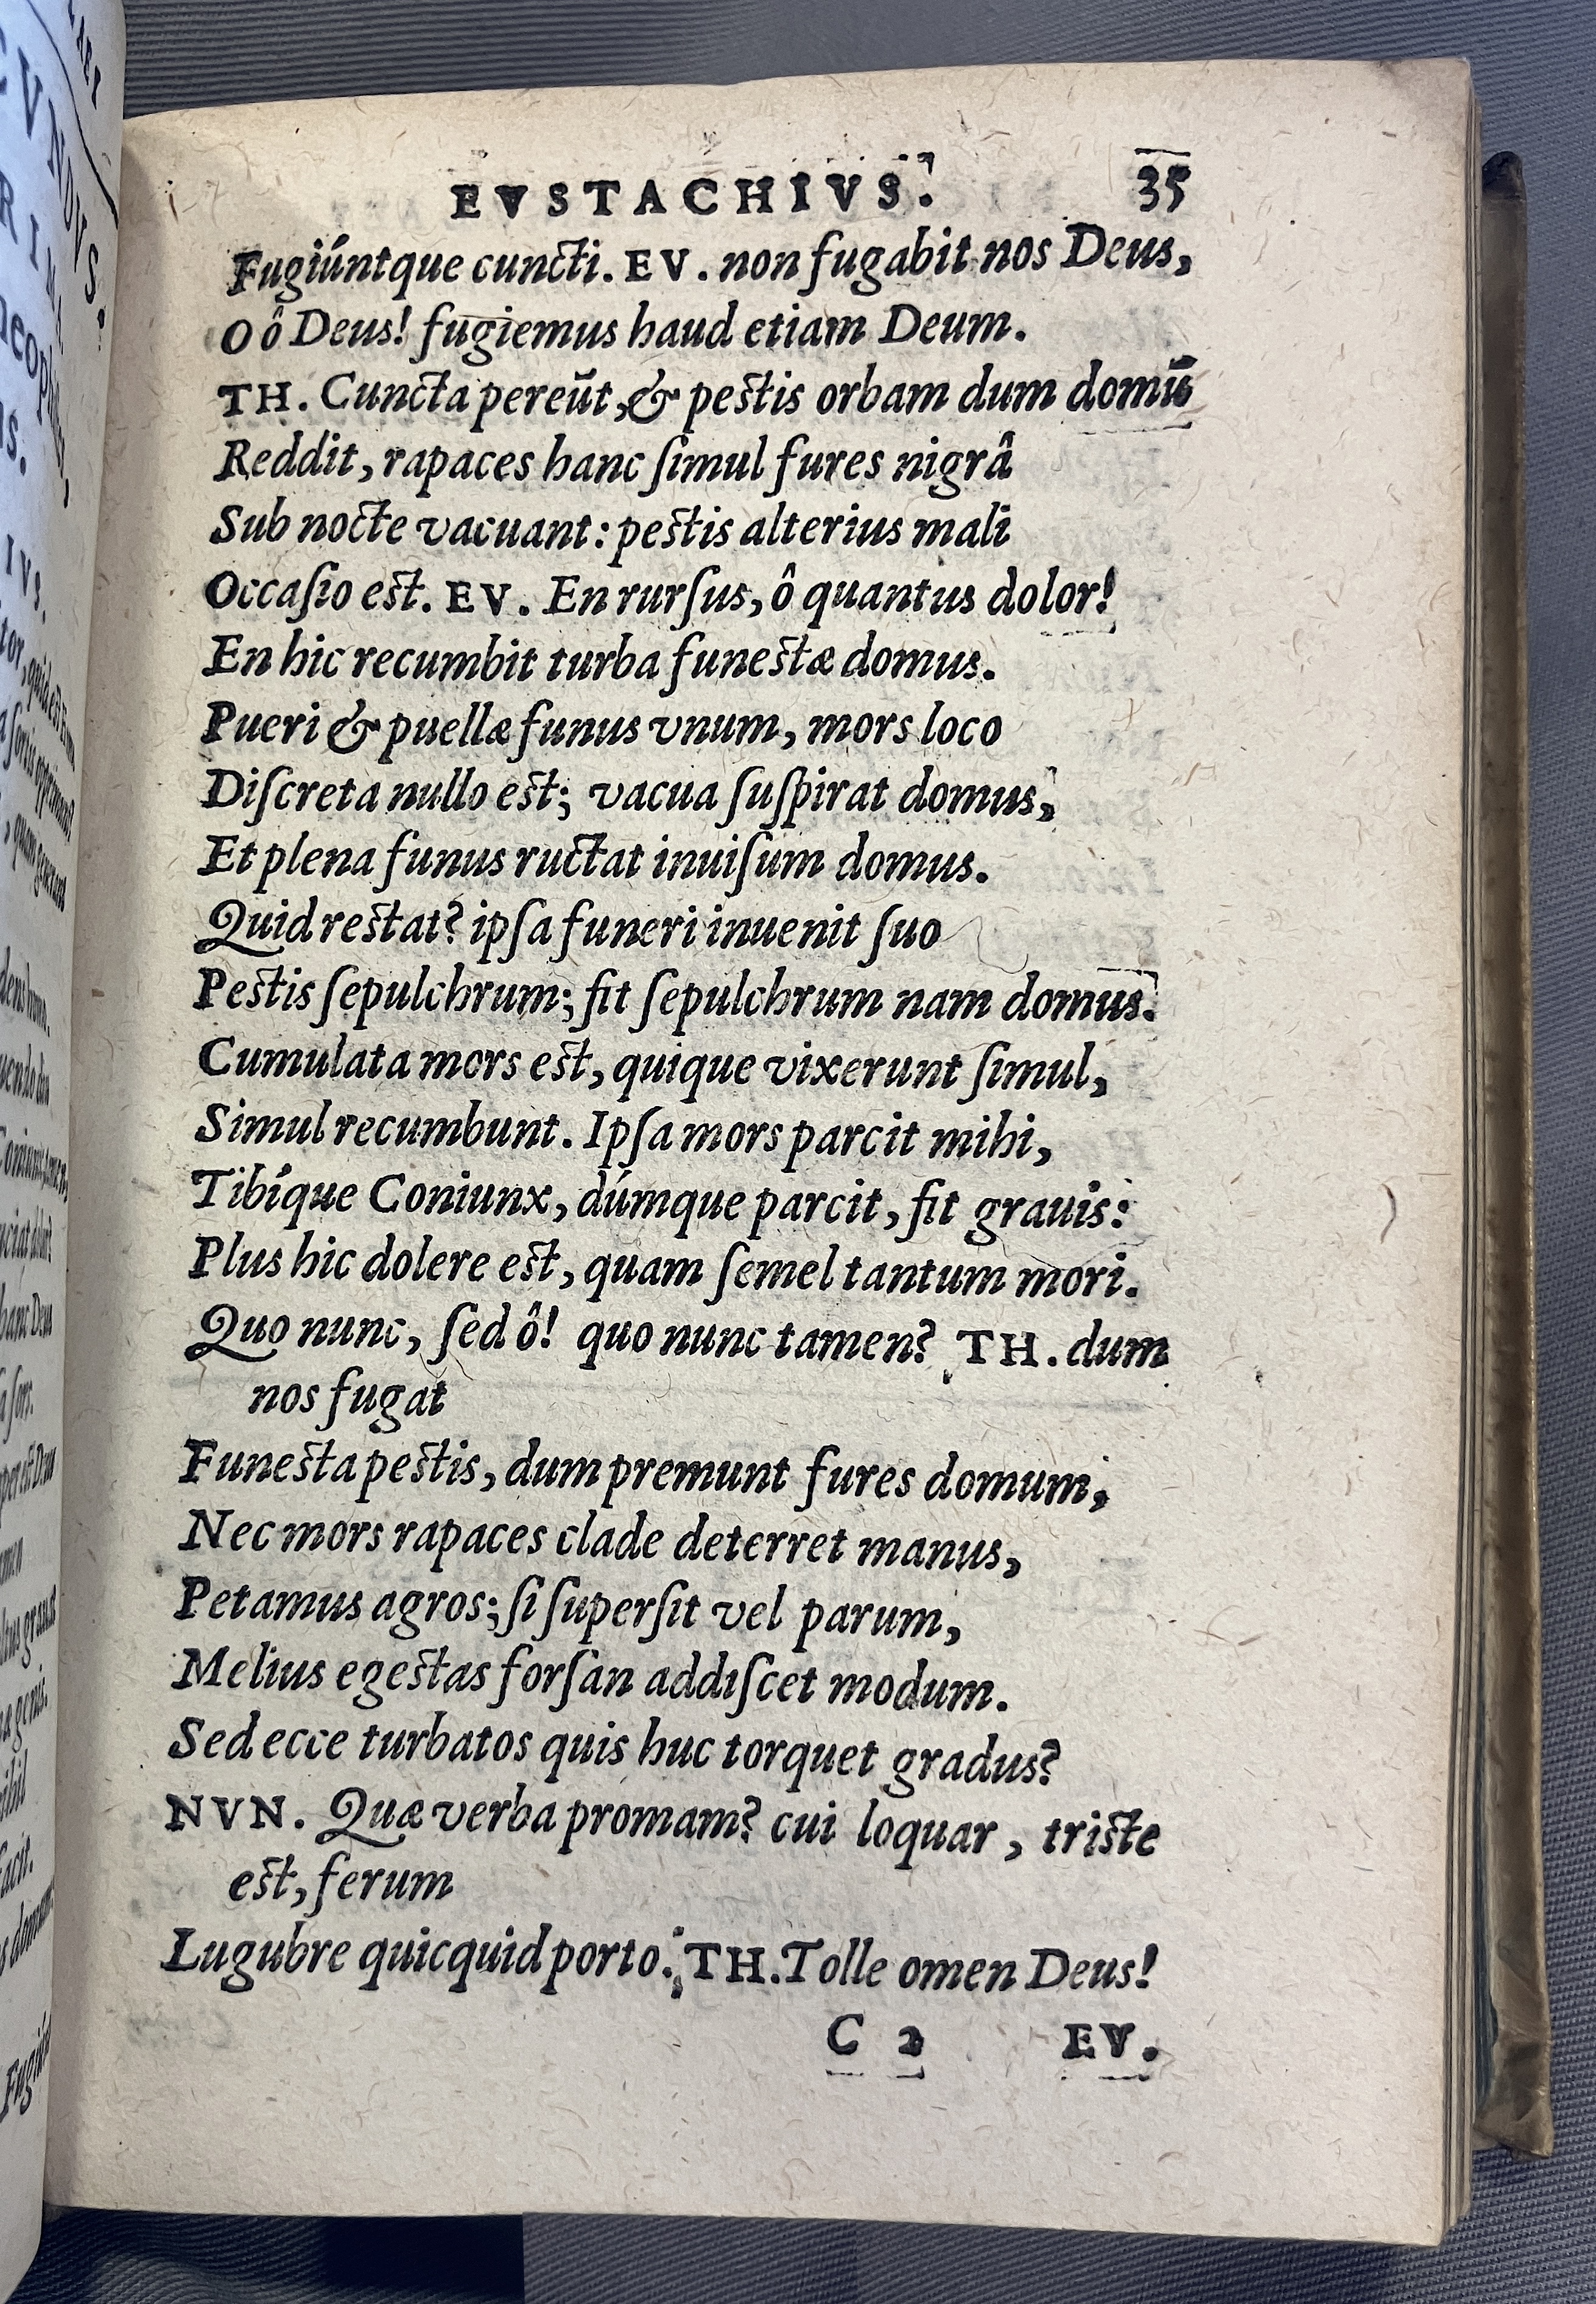 EVSTACHIVS. 35
Fugiúntque cuncti. EV. non fugabit nos Deus,
O ô Deus! fugiemus haud etiam Deum.
TH. Cuncta pereũt, & pestis orbam dum domũ
Reddit, rapaces hanc ſimul fures nigrâ
Sub nocte vacuant: pestis alterius mali
Occaſio est. EV. En rurſus, ô quantus dolor!
En hic recumbit turba funestæ domus.
Pueri & puellæ funus vnum, mors loco
Diſcreta nullo est; vacua ſuſpirat domus,
Et plena funus ructat inuiſum domus.
Quid restat? ipſa funeri inuenit ſuo
Pestis ſepulchrum; fit ſepulchrum nam domus.
Cumulata mors est, quique vixerunt ſimul,
Simul recumbunt. Ipſa mors parcit mihi,
Tibíque Coniunx, dúmque parcit, fit grauis:
Plus hic dolere est, quam ſemel tantum mori.
Quo nunc, ſed ô! quo nunc tamen? TH. dum
nos fugat
Funesta pestis, dum premunt fures domum,
Nec mors rapaces clade deterret manus,
Petamus agros; ſi ſuperſit vel parum,
Melius egestas forſan addiſcet modum.
Sed ecce turbatos quis huc torquet gradus?
NVN. Quæ verba promam? cui loquar, triste
est, ferum
Lugubre quicquid porto. TH. Tolle omen Deus!
C 2 EV.